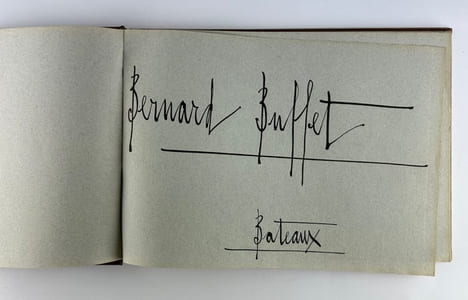 Bernard Buffet
Bateaux